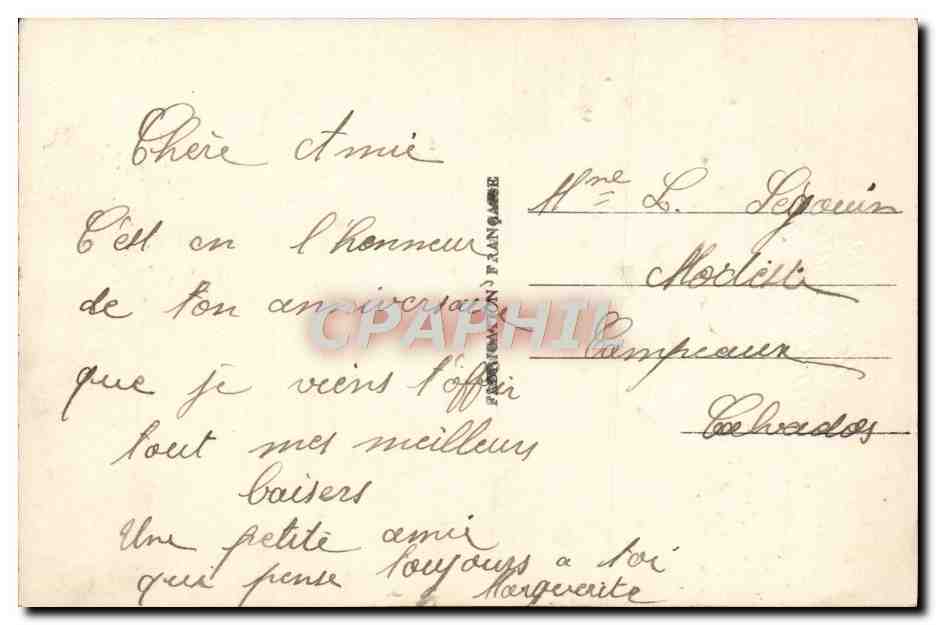 Chère Amie
C'est en l'honneur
de ton anniversaire
que je viens t'offrir
tout mes meilleurs
baisers
Une petite amie
qui pense toujours a toi
Marguerite
FABRICATION FRANÇAISE
Mme L. Ségouin
Modiste
Campeaux
Calvados
CPAPHIL